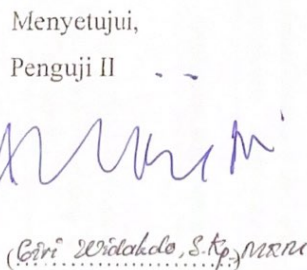 Menyetujui,
Penguji II
(Giri Widakdo, S.Kp., MKM